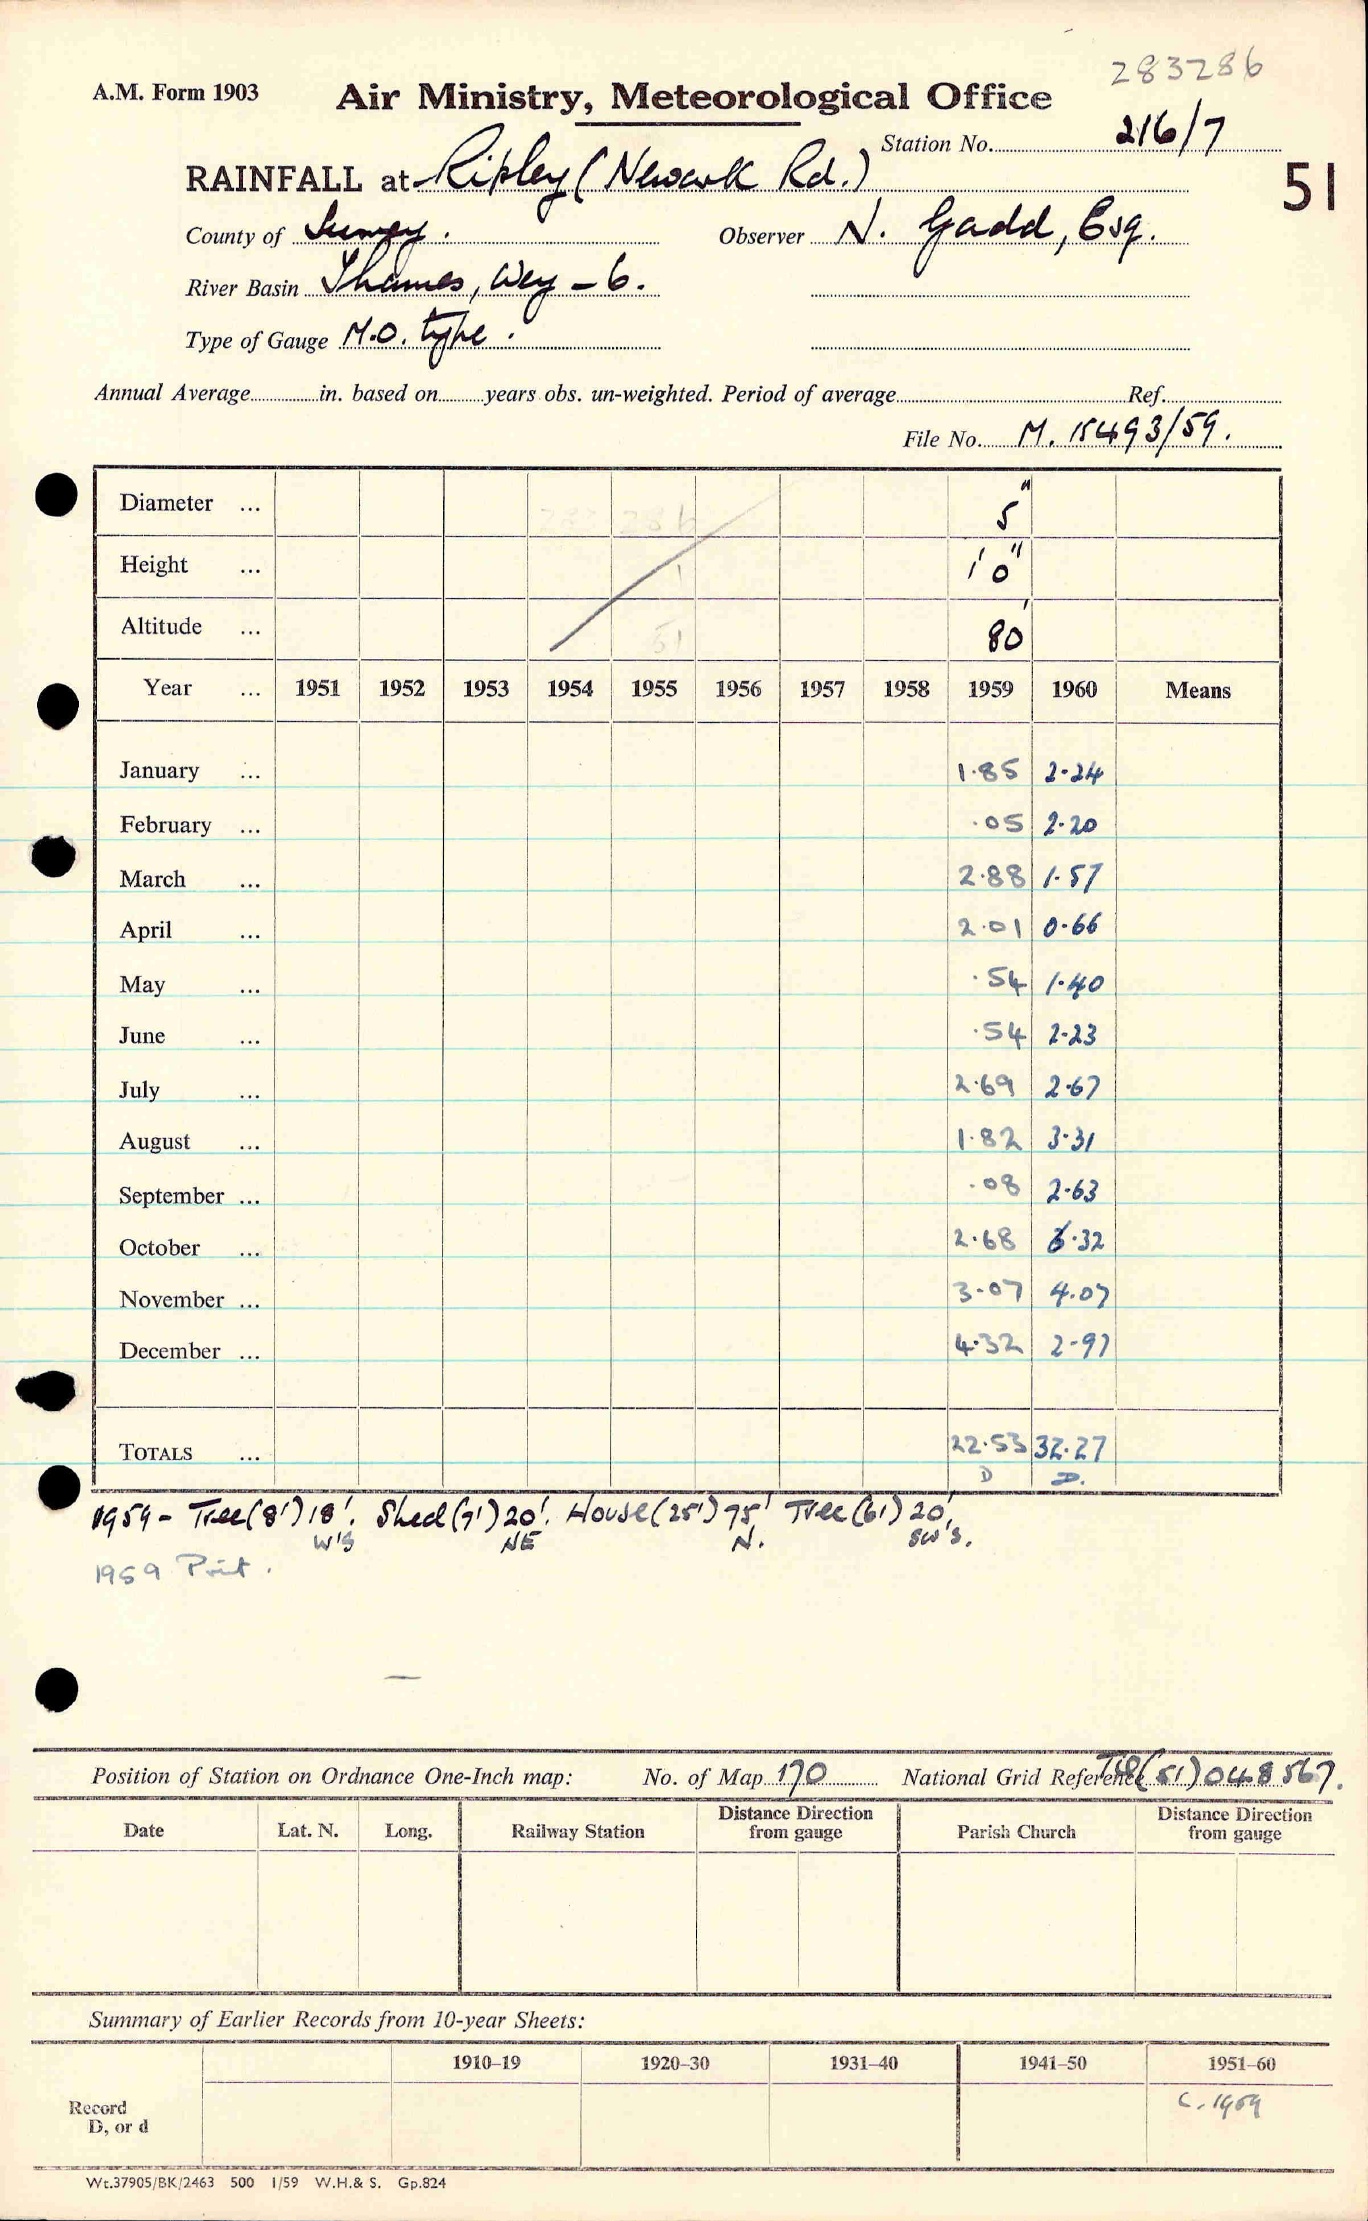 283286
A.M. Form 1903 Air Ministry, Meteorological Office
Station No. 216/7
RAINFALL at Ripley (Newark Rd.) 51
County of Surrey. Observer N. Gadd, Esq.
River Basin Thames, Wey - 6.
Type of Gauge M.O. type.
Annual Average in. based on years obs. un-weighted. Period of average Ref.
File No. M. 15493/59.
Diameter ... 283 286 5"
Height ... 1 1' 0"
Altitude ... 51 80'
Year ... 1951 1952 1953 1954 1955 1956 1957 1958 1959 1960 Means
January ... 1.85 2.24
February ... .05 2.20
March ... 2.88 1.57
April ... 2.01 0.66
May ... .54 1.40
June ... .54 2.23
July ... 2.69 2.67
August ... 1.82 3.31
September ... .08 2.63
October ... 2.68 6.32
November ... 3.07 4.07
December ... 4.32 2.97
TOTALS ... 22.53 32.27
D D.
1959 - Tree (8') 18'. Shed (7') 20'. House (25') 75' Tree (6') 20'.
W'S NE N. SW'S.
1959 Print.
Position of Station on Ordnance One-Inch map: No. of Map 170 National Grid Reference (51) 048567.
Date Lat. N. Long. Railway Station Distance Direction from gauge Parish Church Distance Direction from gauge
Summary of Earlier Records from 10-year Sheets:
1910–19 1920–30 1931–40 1941–50 1951–60
Record
D, or d
C. 1959
Wt.37905/BK/2463 500 1/59 W.H.& S. Gp.824